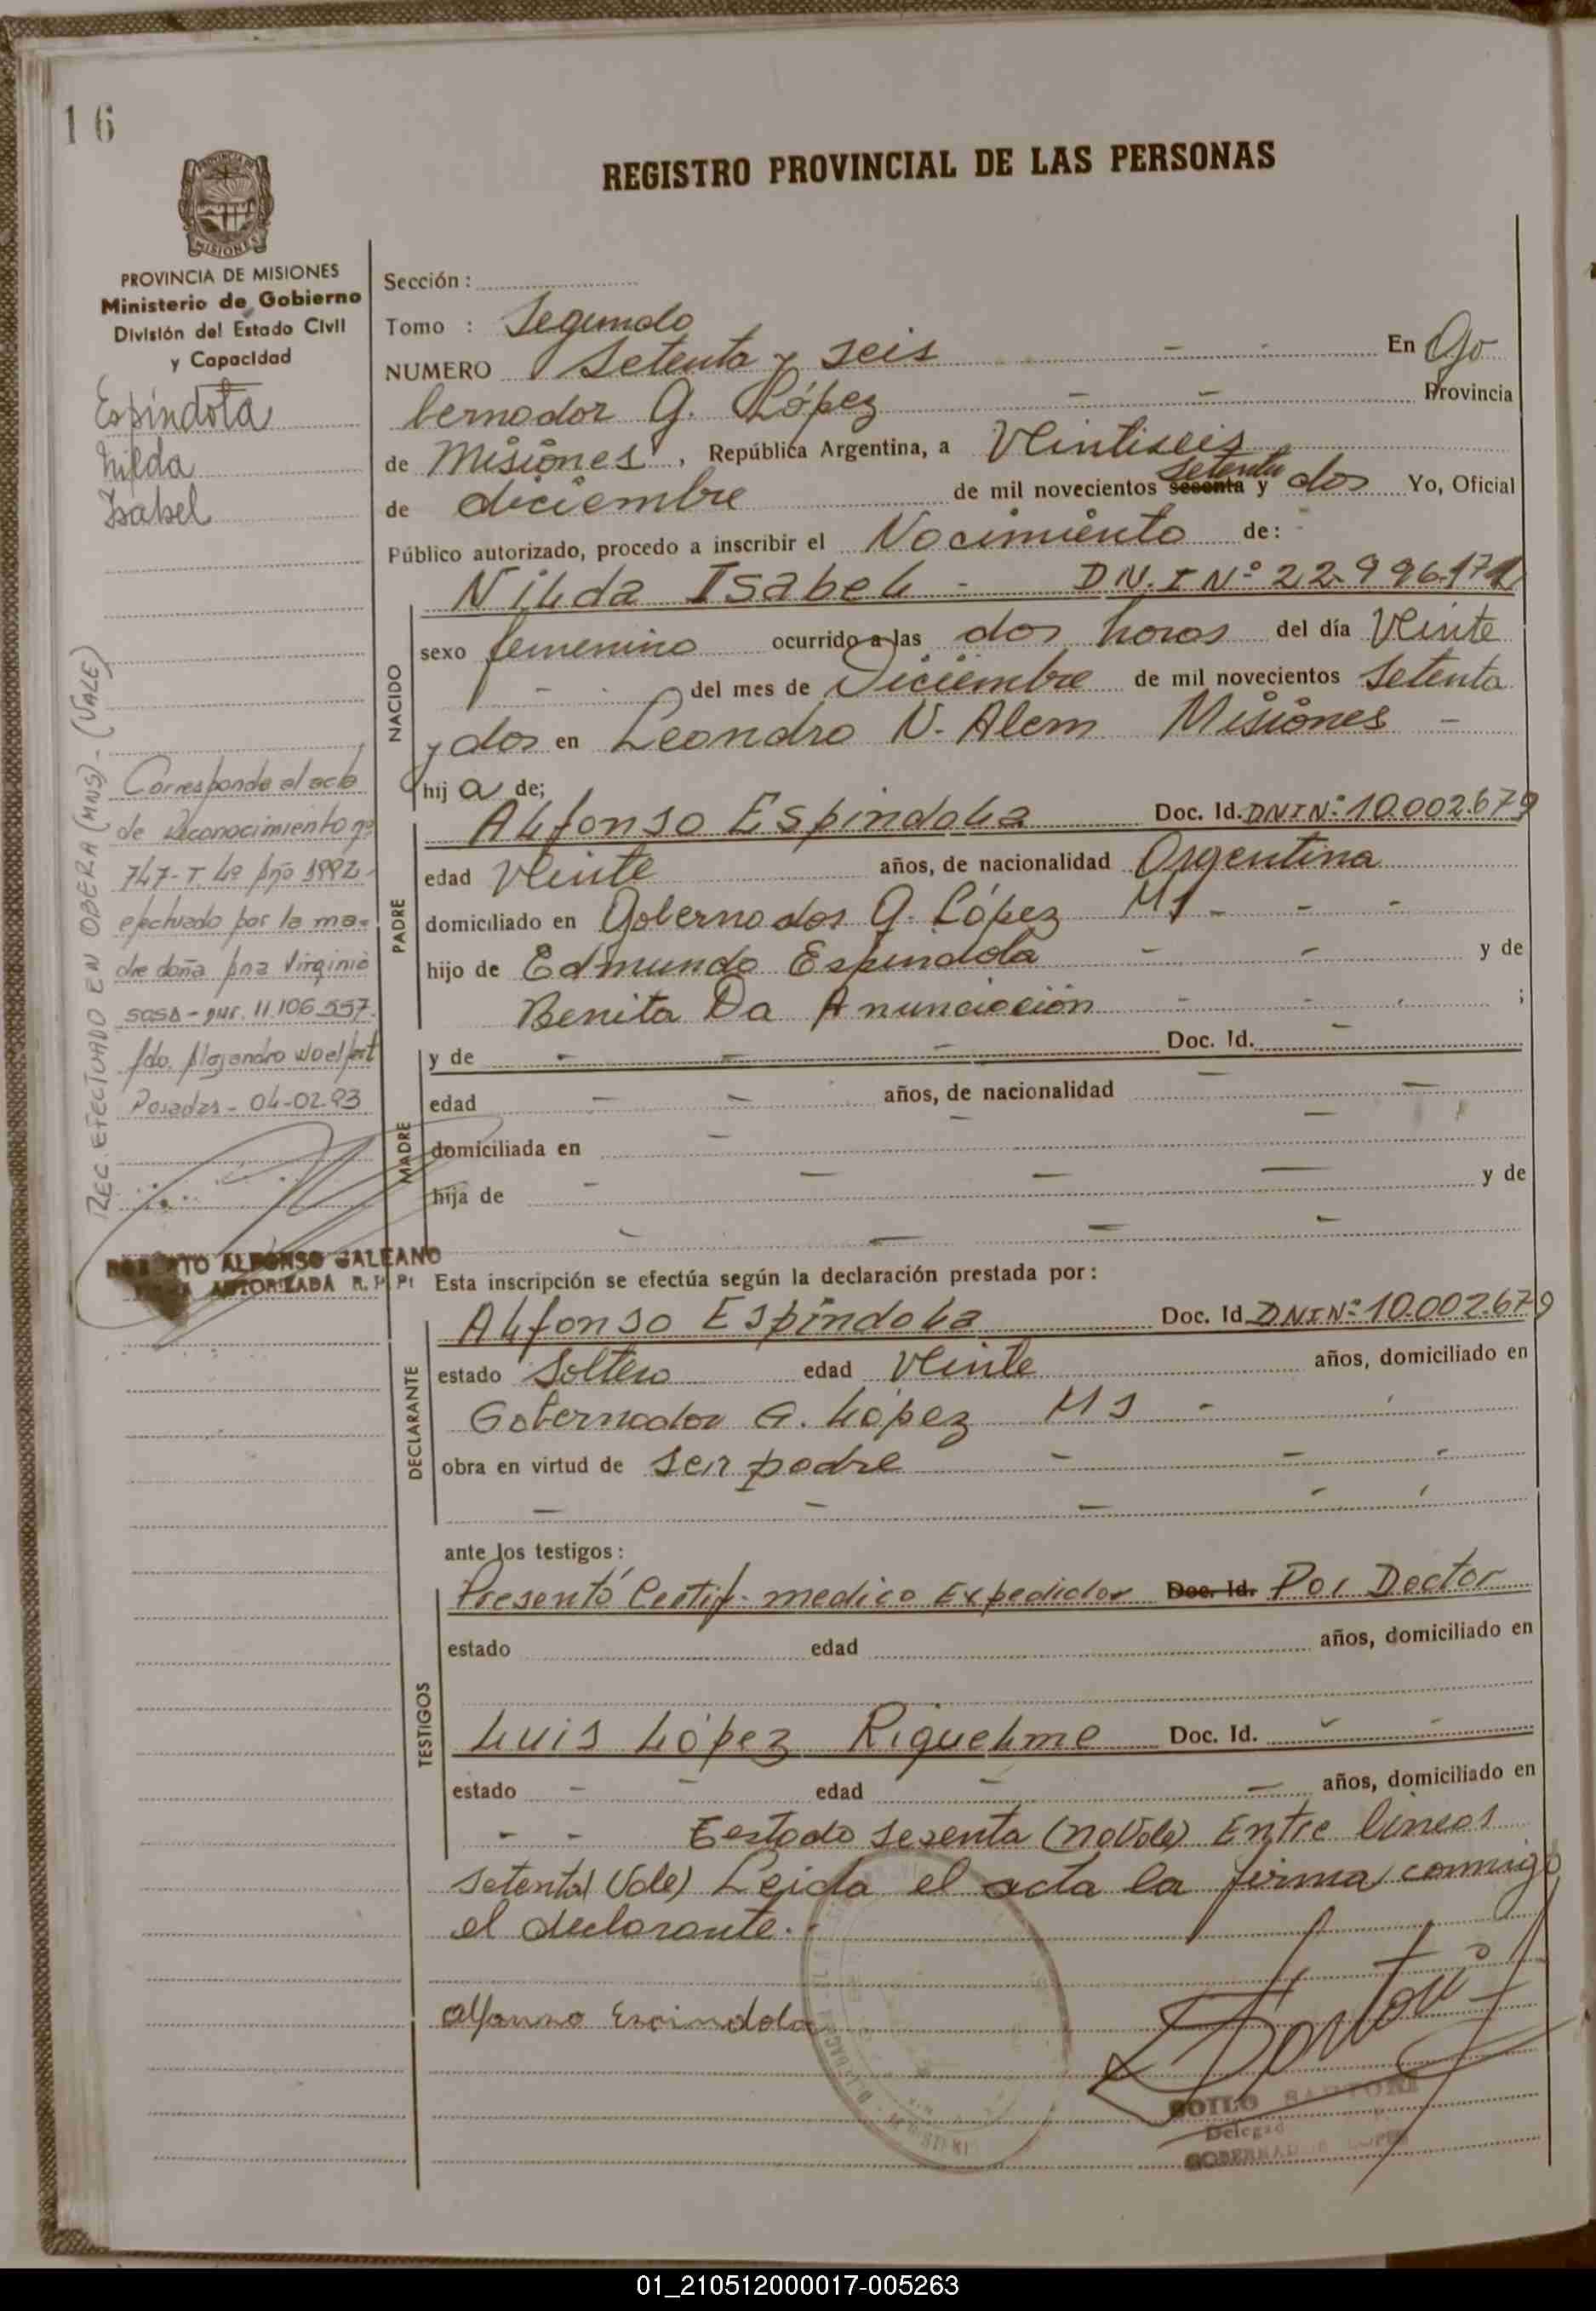 16
REGISTRO PROVINCIAL DE LAS PERSONAS
PROVINCIA DE
MISIONES
PROVINCIA DE MISIONES
Ministerio de Gobierno
División del Estado Civil
y Capacidad
Espíndola
Nilda
Isabel
Corresponde el acta
de Reconocimiento nº
747-T. 4º Año 1992
efectuado por la ma-
dre doña Ana Virginia
SOSA - 11.106.557.
fdo. Alejandro Woelfert
Posadas - 04-02-93
REC. EFECTUADO EN OBERA (MNS) - (VALE)
ALFONSO GALEANO
AUTORIZADA R. P. P.
Sección :
Tomo : Segundo
NUMERO Setenta y seis En Go
bernador G. López Provincia
de Misiones, República Argentina, a Veintiseis
de diciembre de mil novecientos sesenta y setenta dos Yo, Oficial
Público autorizado, procedo a inscribir el Nacimiento de:
Nilda Isabel - D.N.I Nº 22.996.171
NACIDO
sexo femenino ocurrido a las dos horas del día Veinte
del mes de Diciembre de mil novecientos Setenta
y dos en Leandro N. Alem Misiones -
hij a de;
PADRE
Alfonso Espindola Doc. Id. DNI Nº 10.002.679
edad Veinte años, de nacionalidad Argentina
domiciliado en Gobernador G. López Ms - - -
hijo de Edmundo Espindola - - y de
Benita Da Anunciación - - - ;
MADRE
y de - - - Doc. Id. -
edad - - años, de nacionalidad - -
domiciliada en - - -
hija de - - - - y de
- - - -
Esta inscripción se efectúa según la declaración prestada por:
DECLARANTE
Alfonso Espíndola Doc. Id DNI Nº 10.002.679
estado Soltero edad Veinte años, domiciliado en
Gobernador G. López Ms -
obra en virtud de ser padre - - -
- - - - -
ante los testigos:
TESTIGOS
Presentó Certif. medico Expedidor Doc. Id. Por Doctor
estado edad años, domiciliado en
Luis López Riquelme Doc. Id. - -
estado - - edad - - años, domiciliado en
- - Testado sesenta (no Vale) Entre lineas
setenta (Vale) Leida el acta la firma conmigo
el declarante.
Alfonso Espindola
ZOILO SARTORI
Delegad
GOBERNADOR LOPEZ
01_210512000017-005263